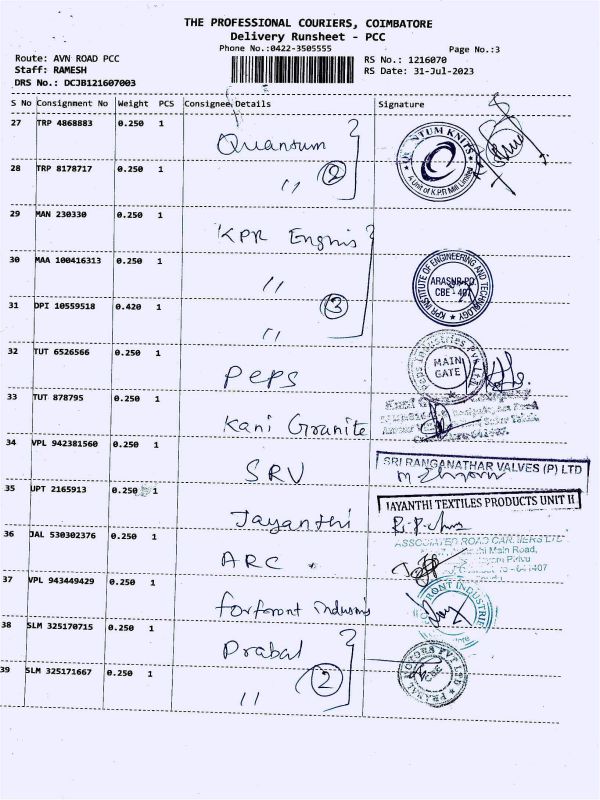 THE PROFESSIONAL COURIERS, COIMBATORE
Delivery Runsheet - PCC
Phone No.:0422-3505555
Page No.:3
Route: AVN ROAD PCC
Staff: RAMESH
DRS No.: DCJB121607003
RS No.: 1216070
RS Date: 31-Jul-2023
S No Consignment No Weight PCS Consignee Details Signature
27 TRP 4868883 0.250 1 Quantum
QUANTUM KNITS
A Unit of K.P.R Mill Limited
28 TRP 8178717 0.250 1 〃 2
29 MAN 230330 0.250 1 KPR Engnis
30 MAA 100416313 0.250 1 〃
KPR INSTITUTE OF ENGINEERING AND TECHNOLOGY
ARASUR PO.
CBE - 407
31 DPI 10559518 0.420 1 〃 3
32 TUT 6526566 0.250 1 Peps
MAIN
GATE
33 TUT 878795 0.250 1 Kani Granite
34 VPL 942381560 0.250 1 SRV
SRI RANGANATHAR VALVES (P) LTD
35 UPT 2165913 0.250 1 Jayanthi
JAYANTHI TEXTILES PRODUCTS UNIT II
36 JAL 530302376 0.250 1 ARC
ASSOCIATED ROAD CARRIERS LTD
Main Road,
37 VPL 943449429 0.250 1 forfront industris
FRONT INDUSTRIE
38 SLM 325170715 0.250 1 Prabal
PRABAL MOTORS PVT LTD
39 SLM 325171667 0.250 1 〃 2